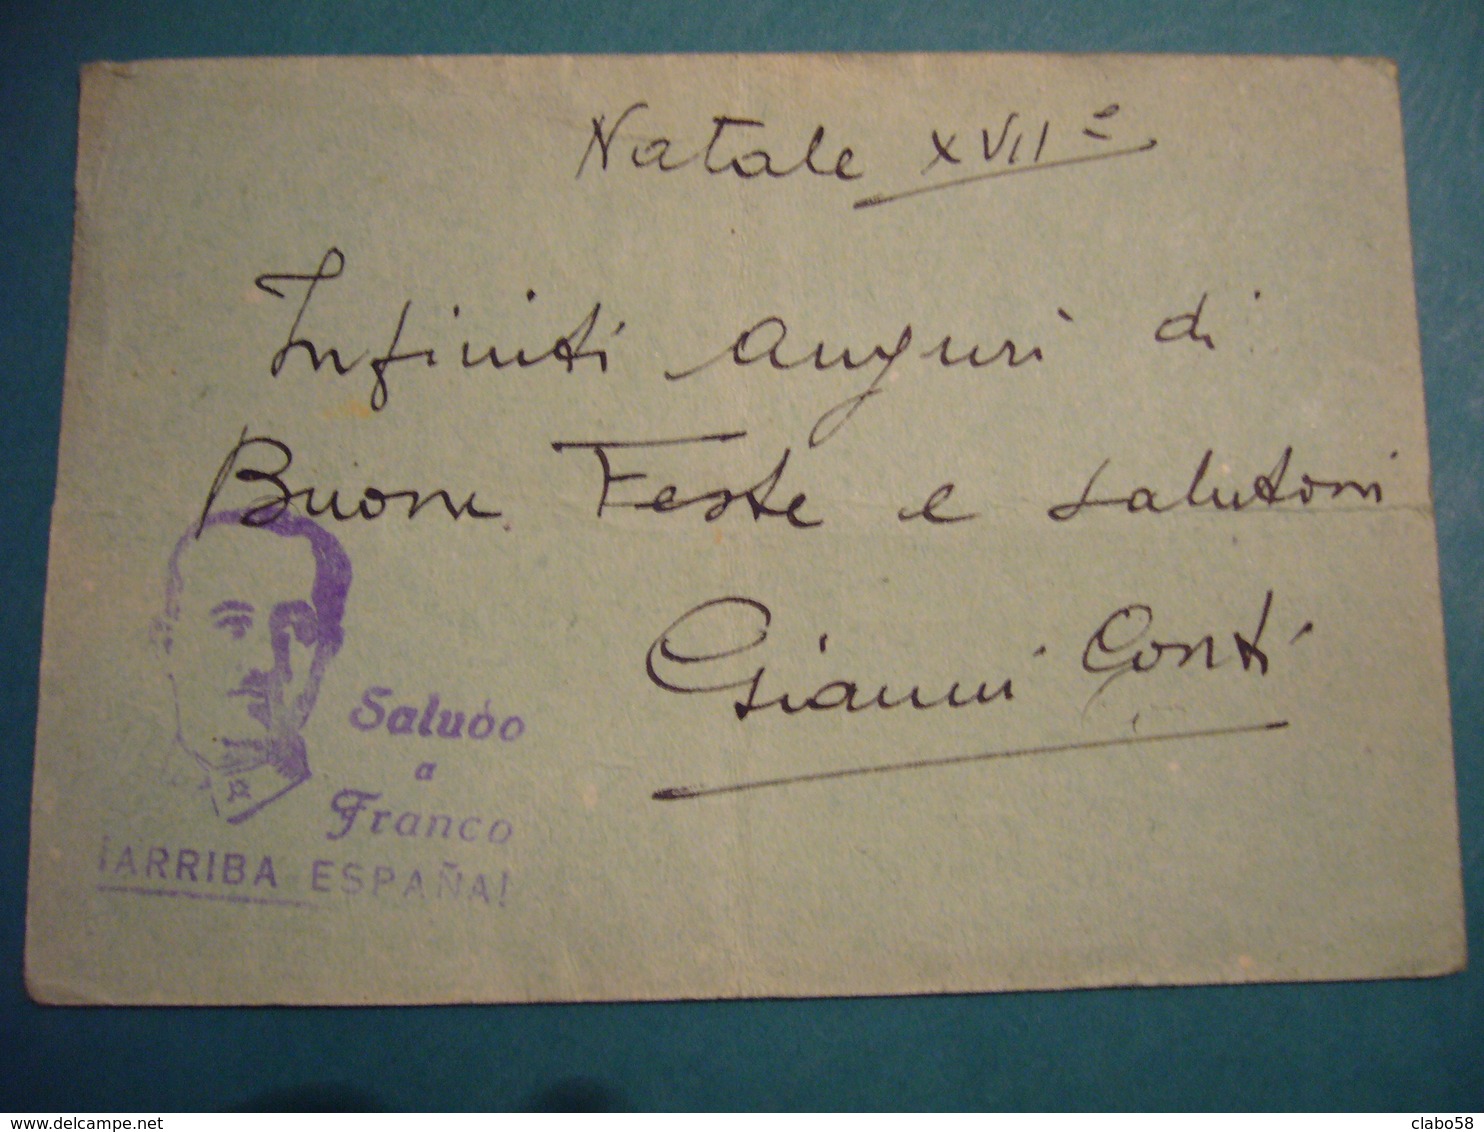 Natale XVII º
Infiniti auguri di
Buone Feste e salutoni
Gianni Conti
Saludo
a
Franco
¡ARRIBA ESPAÑA!
clabo58